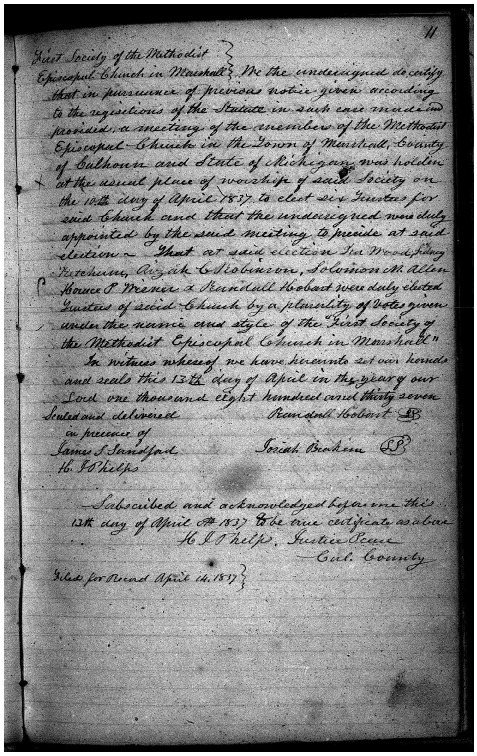 11
First Society of the Methodist
Episcopal Church in Marshall } We the undersigned do certify
that in pursuance of previous notice given according
to the requisitions of the Statute in such case made and
provided, a meeting of the member of the Methodist
Episcopal Church in the Town of Marshall, County
of Calhoun and State of Michigan was holden
at the usual place of worship of said Society on
the 10th day of April 1837 to elect six Trustees for
said Church and that the undersigned were duly
appointed by the said meeting to preside at said
election - That at said election Ira Wood, Sidney
Ketchum, C Robinson, Solomon M. Allen
Horace P. Wisner & Randall Hobart were duly elected
Trustees of said Church by a plurality of votes given
under the name and style of the "First Society of
the Methodist Episcopal Church in Marshall"
In witness whereof we have hereunto set our hands
and seals this 13th day of April in the year of our
Lord one thousand eight hundred and thirty seven
Sealed and delivered Randall Hobart
in presence of
James S. Sandford Josiah
H. J Phelps
Subscribed and acknowledged before me this
13th day of April 1837 to be true certificate as above
H. J Phelps. Justice Peace
Cal. County
Filed for Record April 14, 1837 }